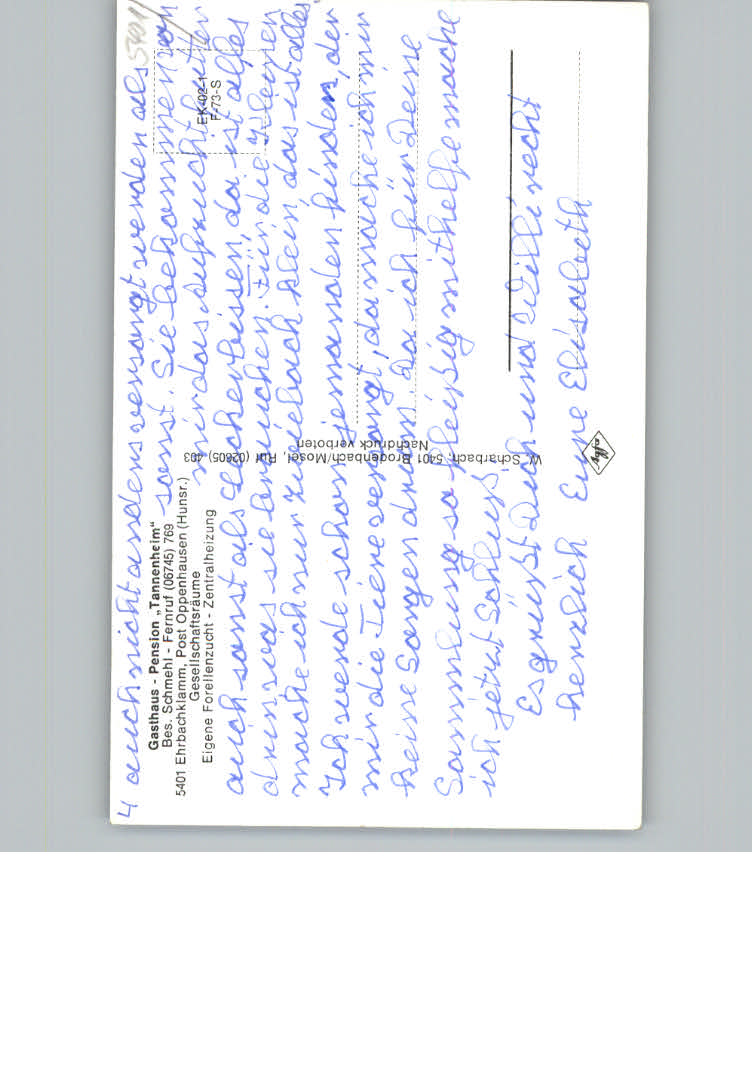 4 auch nicht anders versorgt werden als
sonst. Sie bekommen von
mir das aufgeweicht
auch sonst als da ist alles
drin was sie brauchen. Für die kleinen
mache ich nur Zwieback klein das ist alles
Ich werde schon jemanden finden, der
mir die Tiere versorgt, da mache ich mir
keine Sorgen drum. Da ich für Deine
Sammlung so fleißig mithelfe mache
ich jetzt Schluß
Es grüßt Dich und Willi recht
herzlich Eure Elisabeth
Gasthaus - Pension „Tannenheim"
Bes. Schmehl - Fernruf (06745) 769
5401 Ehrbachklamm, Post Oppenhausen (Hunsr.)
Gesellschaftsräume
Eigene Forellenzucht - Zentralheizung
EK-02-1
F-73-S
W. Scharbach, 5401 Brodenbach/Mosel, Ruf (02605) 403
Nachdruck verboten
Agfa
5401